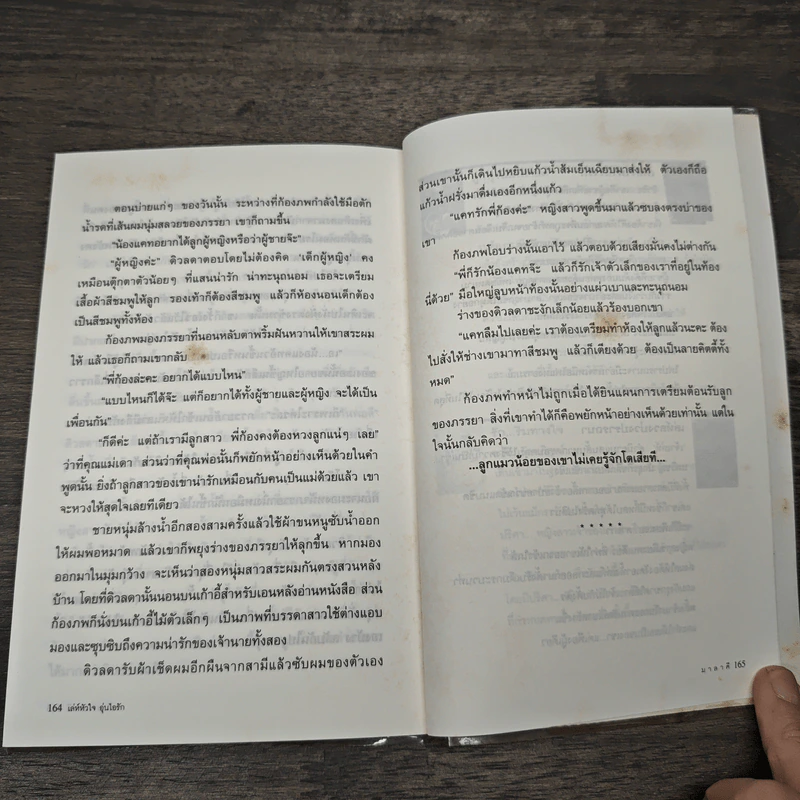 ตอนบ่ายแก่ๆ ของวันนั้น ระหว่างที่ก้องภพกำลังใช้มือตัก
น้ำรดที่เส้นผมนุ่มสลวยของภรรยา เขาก็ถามขึ้น
“น้องแคทอยากได้ลูกผู้หญิงหรือว่าผู้ชายจ๊ะ”
“ผู้หญิงค่ะ” ดิวลดาตอบโดยไม่ต้องคิด ‘เด็กผู้หญิง’ คง
เหมือนตุ๊กตาตัวน้อยๆ ที่แสนน่ารัก น่าทะนุถนอม เธอจะเตรียม
เสื้อผ้าสีชมพูให้ลูก รองเท้าก็ต้องสีชมพู แล้วก็ห้องนอนเด็กต้อง
เป็นสีชมพูทั้งห้อง
ก้องภพมองภรรยาที่นอนหลับตาพริ้มฝันหวานให้เขาสระผม
ให้ แล้วเธอก็ถามเขากลับ
“พี่ก้องล่ะคะ อยากได้แบบไหน”
“แบบไหนก็ได้จ๊ะ แต่ก็อยากได้ทั้งผู้ชายและผู้หญิง จะได้เป็น
เพื่อนกัน”
“ก็ดีค่ะ แต่ถ้าเรามีลูกสาว พี่ก้องคงต้องหวงลูกแน่ๆ เลย”
ว่าที่คุณแม่เดา ส่วนว่าที่คุณพ่อนั้นก็พยักหน้าอย่างเห็นด้วยในคำ
พูดนั้น ยิ่งถ้าลูกสาวของเขาน่ารักเหมือนกับคนเป็นแม่ด้วยแล้ว เขา
จะหวงให้สุดใจเลยทีเดียว
ชายหนุ่มล้างน้ำอีกสองสามครั้งแล้วใช้ผ้าขนหนูซับน้ำออก
ให้ผมพอหมาด แล้วเขาก็พยุงร่างของภรรยาให้ลุกขึ้น หากมอง
ออกมาในมุมกว้าง จะเห็นว่าสองหนุ่มสาวสระผมกันตรงสวนหลัง
บ้าน โดยที่ดิวลดานั้นนอนบนเก้าอี้สำหรับเอนหลังอ่านหนังสือ ส่วน
ก้องภพก็นั่งบนเก้าอี้ไม้ตัวเล็กๆ เป็นภาพที่บรรดาสาวใช้ต่างแอบ
มองและซุบซิบถึงความน่ารักของเจ้านายทั้งสอง
ดิวลดารับผ้าเช็ดผมอีกผืนจากสามีแล้วซับผมของตัวเอง
164 เล่ห์หัวใจ อุ่นไอรัก
ส่วนเขานั้นก็เดินไปหยิบแก้วน้ำส้มเย็นเฉียบมาส่งให้ ตัวเองก็ถือ
แก้วน้ำฝรั่งมาดื่มเองอีกหนึ่งแก้ว
“แคทรักพี่ก้องค่ะ” หญิงสาวพูดขึ้นมาแล้วซบลงตรงบ่าของ
เขา
ก้องภพโอบร่างนั้นเอาไว้ แล้วตอบด้วยเสียงมั่นคงไม่ต่างกัน
“พี่ก็รักน้องแคทจ๊ะ แล้วก็รักเจ้าตัวเล็กของเราที่อยู่ในท้อง
นี่ด้วย” มือใหญ่ลูบหน้าท้องนั้นอย่างแผ่วเบาและทะนุถนอม
ร่างของดิวลดาชะงักเล็กน้อยแล้วร้องบอกเขา
“แคทลืมไปเลยค่ะ เราต้องเตรียมทำห้องให้ลูกแล้วนะคะ ต้อง
ไปสั่งให้ช่างเขามาทาสีชมพู แล้วก็เตียงด้วย ต้องเป็นลายคิตตี้ทั้ง
หมด”
ก้องภพทำหน้าไม่ถูกเมื่อได้ยินแผนการเตรียมต้อนรับลูก
ของภรรยา สิ่งที่เขาทำได้ก็คือพยักหน้าอย่างเห็นด้วยเท่านั้น แต่ใน
ใจนั้นกลับคิดว่า
...ลูกแมวน้อยของเขาไม่เคยรู้จักโตเสียที...
* * * * *
มาลาตี 165